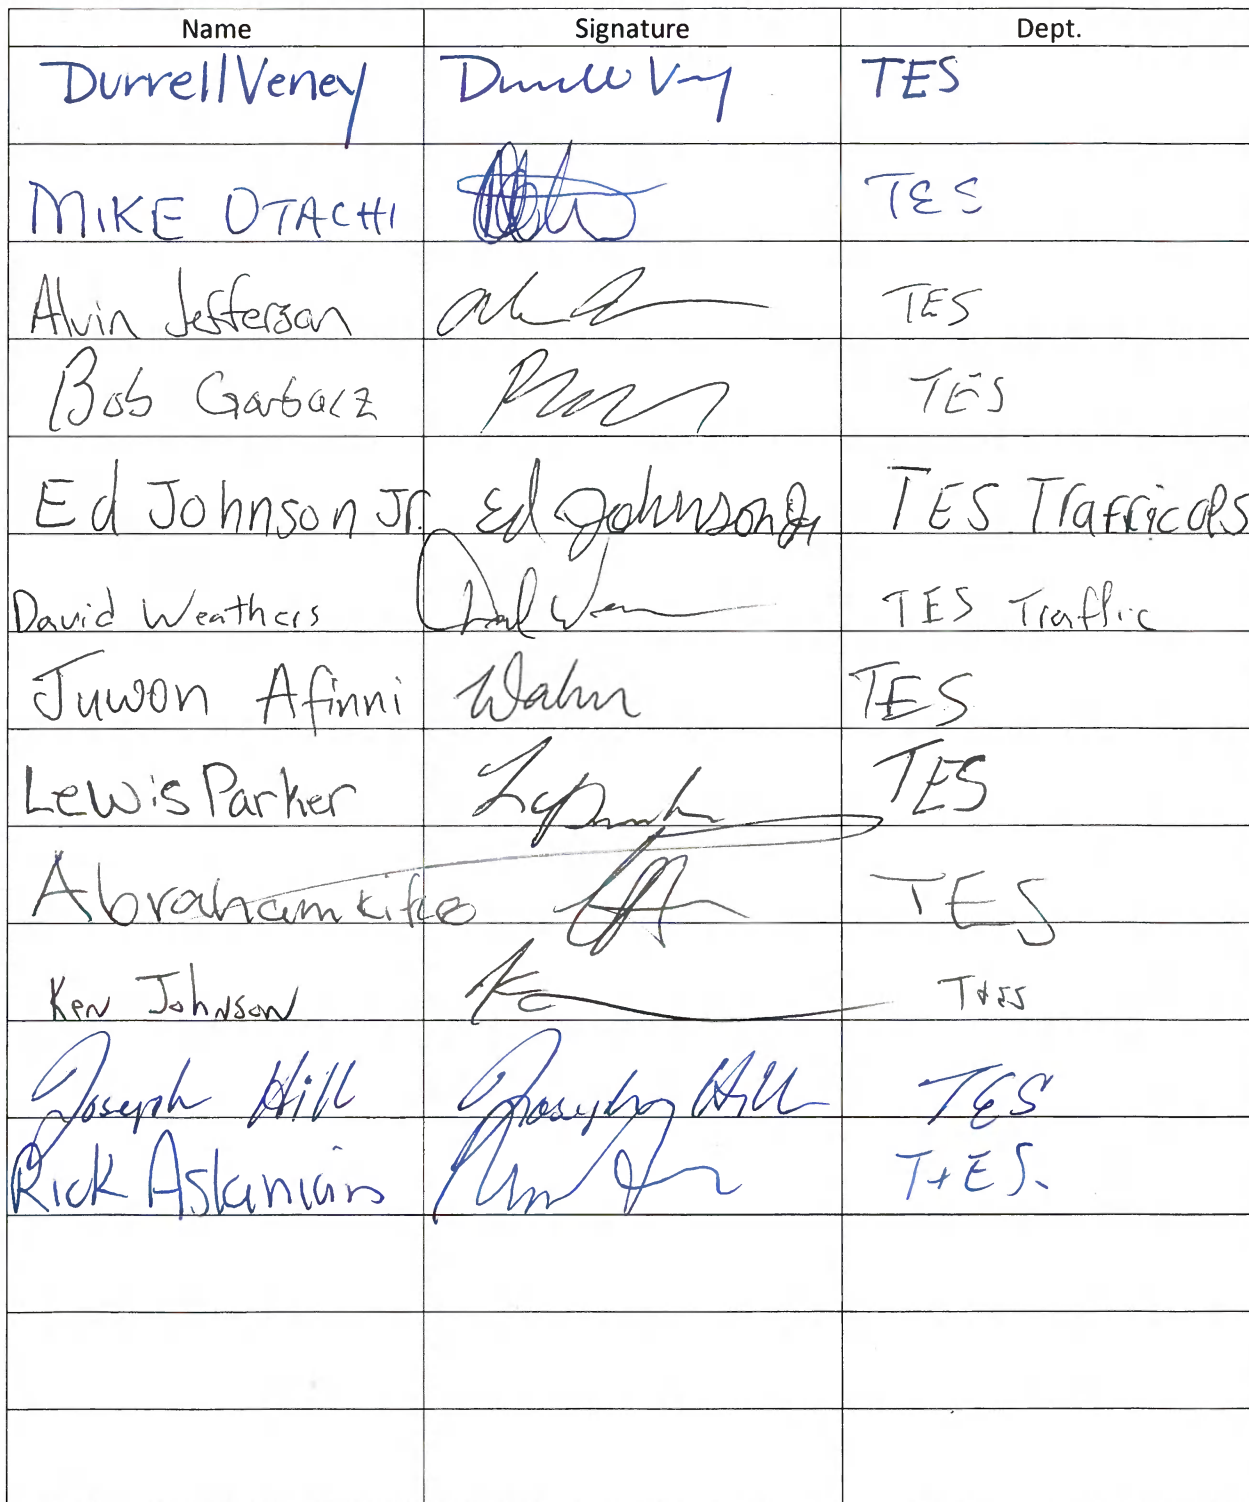 Name Signature Dept.
Durrell Veney TES
MIKE OTACHI TES
Alvin Jefferson TES
Bob Garbacz TES
Ed Johnson Jr. Ed Johnson Jr TES Traffic OPS
David Weathers TES Traffic
Juwon Afinni TES
Lewis Parker TES
Abraham TES
Ken Johnson T&ES
Joseph Hill Joseph Hill TES
Rick Askanians T+ES.